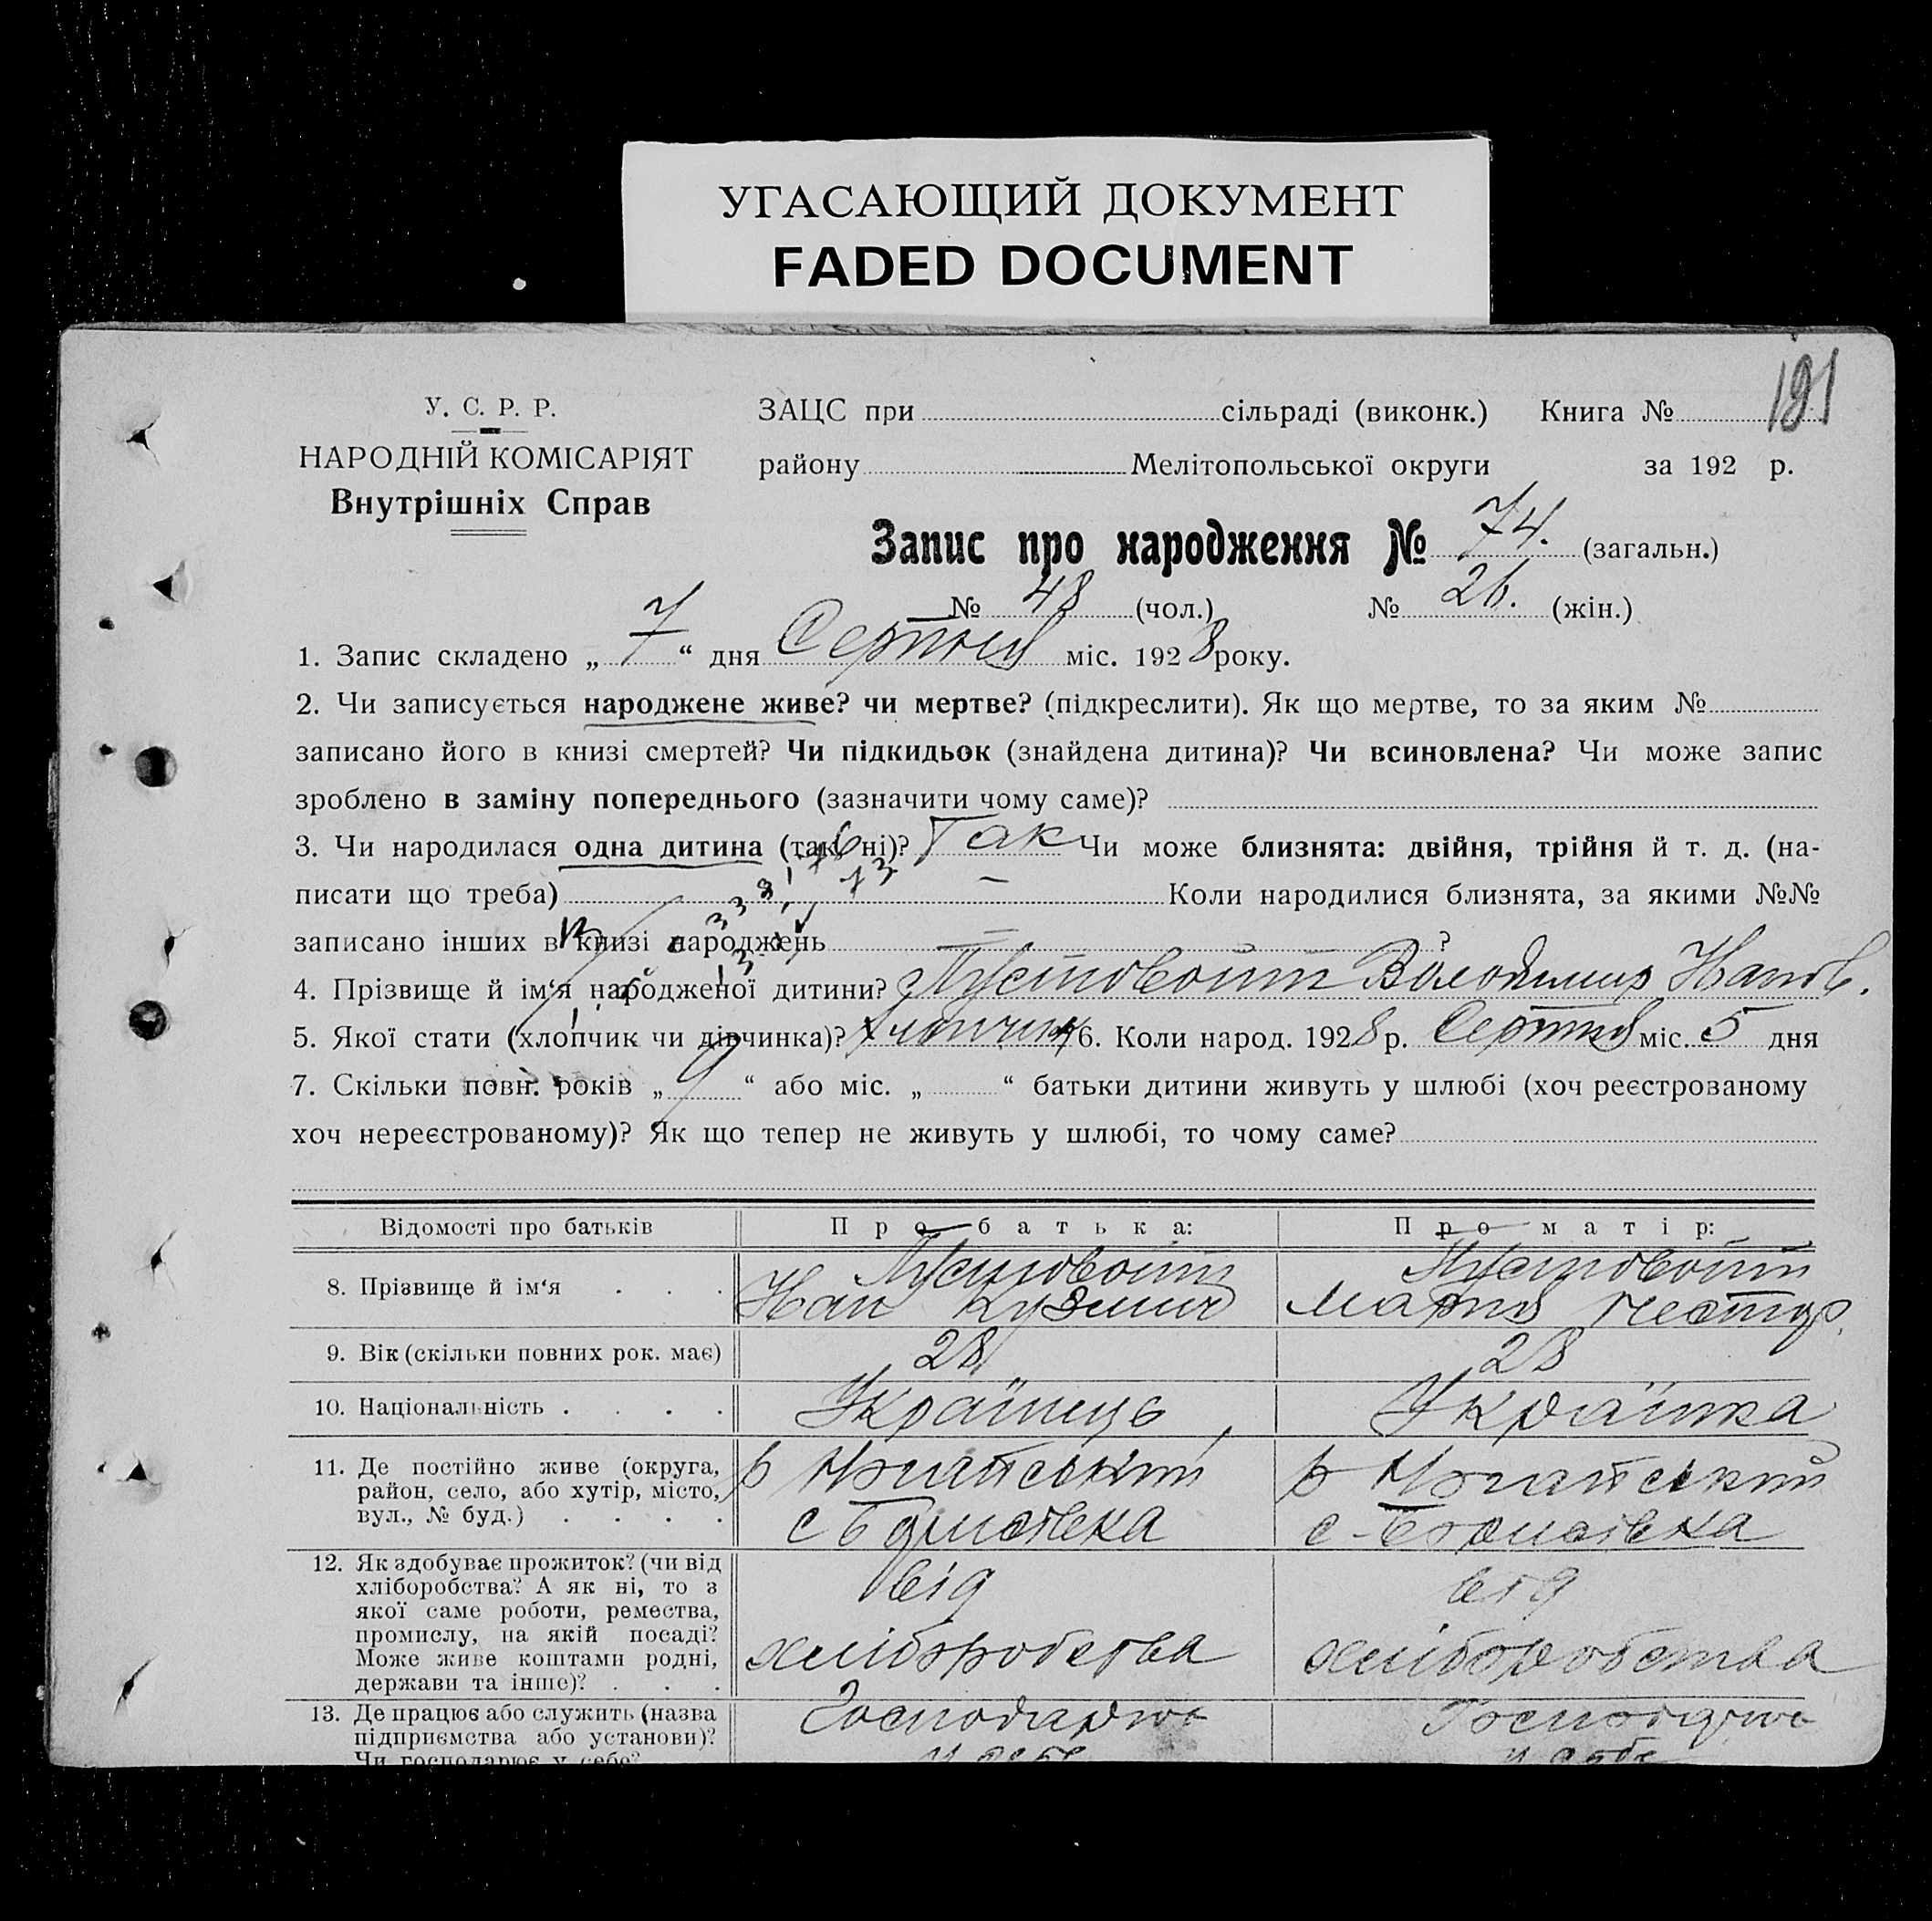 УГАСАЮЩИЙ ДОКУМЕНТ
FADED DOCUMENT
191
У. С. Р. Р.
НАРОДНІЙ КОМІСАРІЯТ
Внутрішніх Справ
ЗАЦС при сільраді (виконк.) Книга №
району Мелітопольської округи за 192 р.
Запис про народження № 74. (загальн.)
№ 48 (чол.) № 26. (жін.)
1. Запис складено „ 7 “ дня Серпня міс. 1928 року.
2. Чи записується народжене живе? чи мертве? (підкреслити). Як що мертве, то за яким №
записано його в книзі смертей? Чи підкидьок (знайдена дитина)? Чи всиновлена? Чи може запис
зроблено в заміну попереднього (зазначити чому саме)?
3. Чи народилася одна дитина (так, ні)? Так Чи може близнята: двійня, трійня й т. д. (на-
писати що треба) — Коли народилися близнята, за якими №№
записано інших в книзі народжень — ?
4. Прізвище й ім‘я народженої дитини? Пустовойт Володимир
5. Якої стати (хлопчик чи дівчинка)? хлопчик 6. Коли народ. 1928 р. Серпня міс. 5 дня
7. Скільки повн. років „ 9 “ або міс. „ “ батьки дитини живуть у шлюбі (хоч реєстрованому
хоч нереєстрованому)? Як що тепер не живуть у шлюбі, то чому саме?
Відомості про батьків Про батька: Про матір:
8. Прізвище й ім‘я . . . Пустовойт Пустовойт
Кузьмич Мария Нестор.
9. Вік (скільки повних рок. має) 28 28
10. Національність . . . . Українець Українка
11. Де постійно живе (округа,
район, село, або хутір, місто,
вул., № буд.) . . . . с с-
12. Як здобуває прожиток? (чи від
хліборобства? А як ні, то з
якої саме роботи, ремества,
промислу, на якій посаді?
Може живе коштами родні,
держави та інше)? . . . від хліборобства від хліборобства
13. Де працює або служить (назва
підприємства або установи)?
Чи господарює у себе? Господарює у себе Господарює у себе